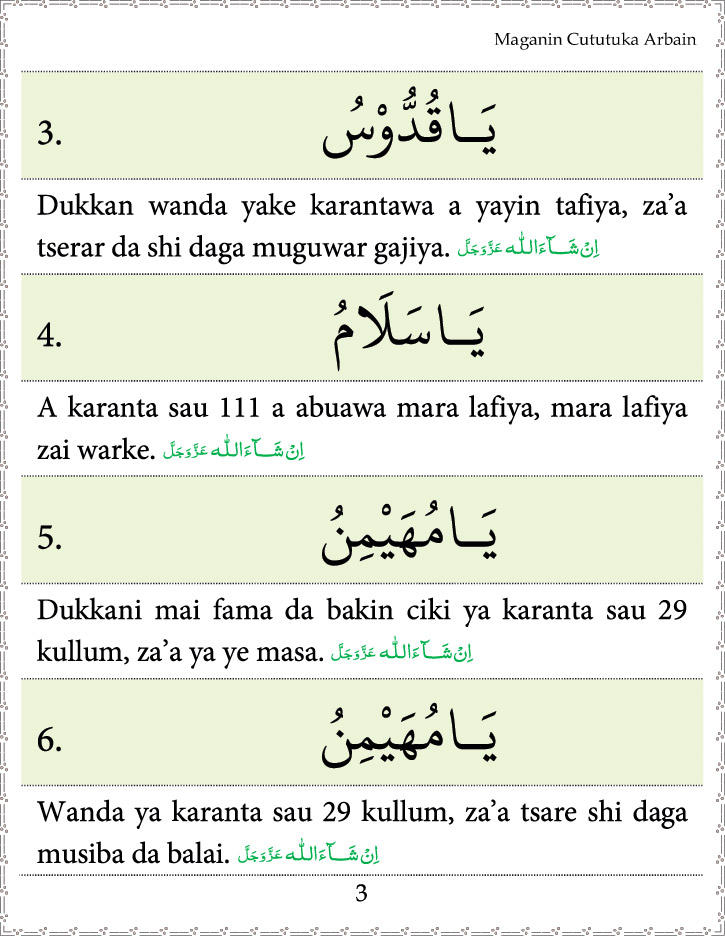 Maganin Cututuka Arbain
3. يَـا قُدُّوْسُ
Dukkan wanda yake karantawa a yayin tafiya, za’a
tserar da shi daga muguwar gajiya. اِنْ شَـآءَ اللّٰه عَزَّوَجَلَّ
4. يَـا سَلَامُ
A karanta sau 111 a abuawa mara lafiya, mara lafiya
zai warke. اِنْ شَـآءَ اللّٰه عَزَّوَجَلَّ
5. يَـا مُهَيْمِنُ
Dukkani mai fama da bakin ciki ya karanta sau 29
kullum, za’a ya ye masa. اِنْ شَـآءَ اللّٰه عَزَّوَجَلَّ
6. يَـا مُهَيْمِنُ
Wanda ya karanta sau 29 kullum, za’a tsare shi daga
musiba da balai. اِنْ شَـآءَ اللّٰه عَزَّوَجَلَّ
3